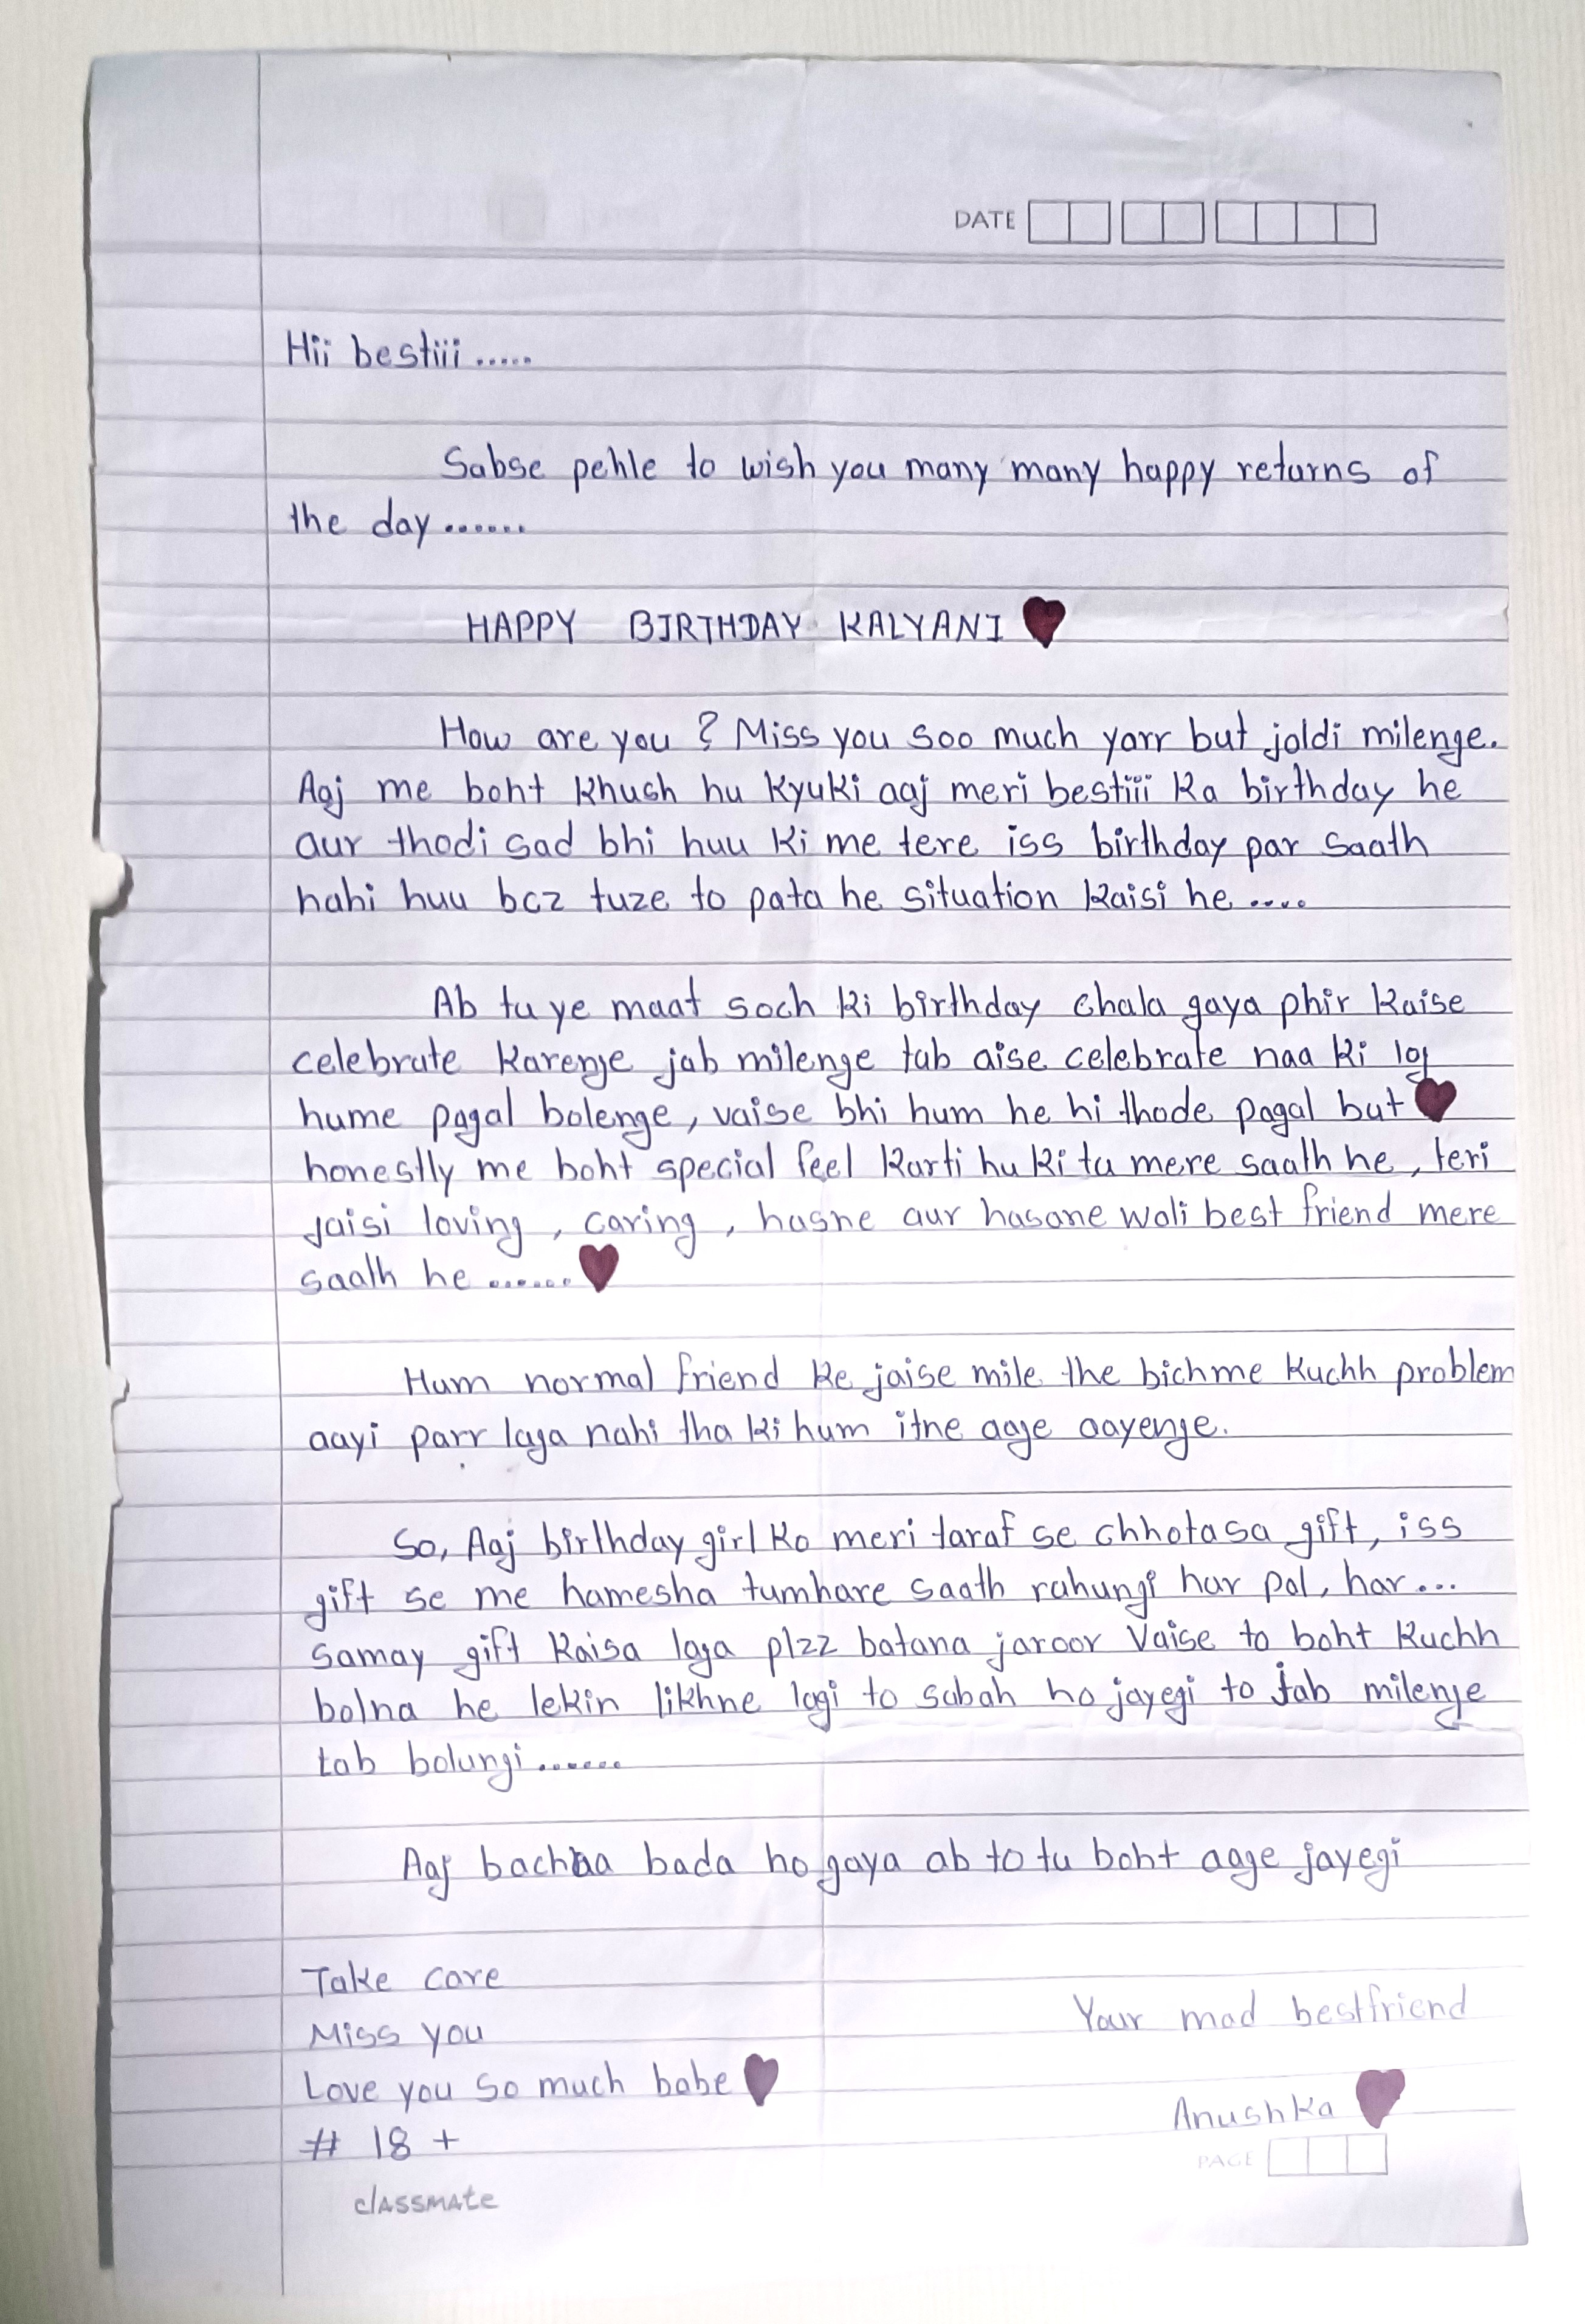 DATE
Hii bestiii .....
Sabse pehle to wish you many many happy returns of
the day ......
HAPPY BIRTHDAY KALYANI ♥
How are you ? Miss you soo much yarr but jaldi milenge.
Aaj me boht khush hu kyuki aaj meri bestiii ka birthday he
aur thodi sad bhi huu ki me tere iss birthday par saath
nahi huu bcz tuze to pata he situation kaisi he ....
Ab tu ye maat soch ki birthday chala gaya phir kaise
celebrate karenge jab milenge tab aise celebrate naa ki log
hume pagal bolenge, vaise bhi hum he hi thode pagal but ♥
honestly me boht special feel karti hu ki tu mere saath he, teri
jaisi loving, caring, hasne aur hasane wali best friend mere
saath he ...... ♥
Hum normal friend ke jaise mile the bichme kuchh problem
aayi parr laga nahi tha ki hum itne aage aayenge.
So, Aaj birthday girl ko meri taraf se chhotasa gift, iss
gift se me hamesha tumhare saath rahungi har pal, har...
samay gift kaisa laga plzz batana jaroor Vaise to boht kuchh
bolna he lekin likhne lagi to subah ho jayegi to jab milenge
tab bolungi ......
Aaj bachhaa bada ho gaya ab to tu boht aage jayegi
Take care
Miss you
Your mad bestfriend
Love you so much babe ♥
Anushka ♥
# 18 +
PAGE
classmate